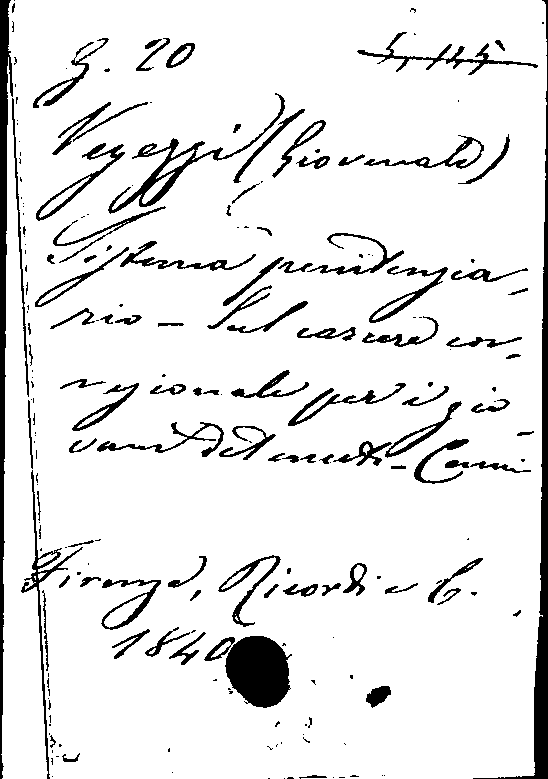 G. 20 5, 145
Vegezzi (Giovenale)
Sistema penitenzia-
rio - Sul carcere cor-
rezionale per i gio-
vani detenuti - Cenni
Firenze, Ricordi e C.
1840